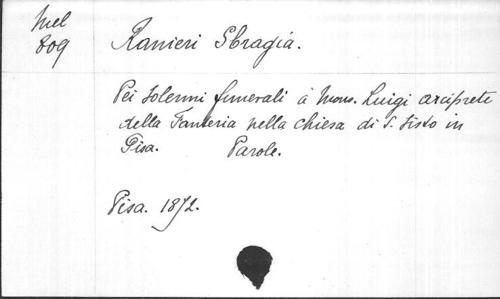 Mel
809
Ranieri Sbragia.
Pei solenni funerali a Mons. Luigi arciprete
della Fanteria nella chiesa di S. Sisto in
Pisa. Parole.
Pisa. 1872.